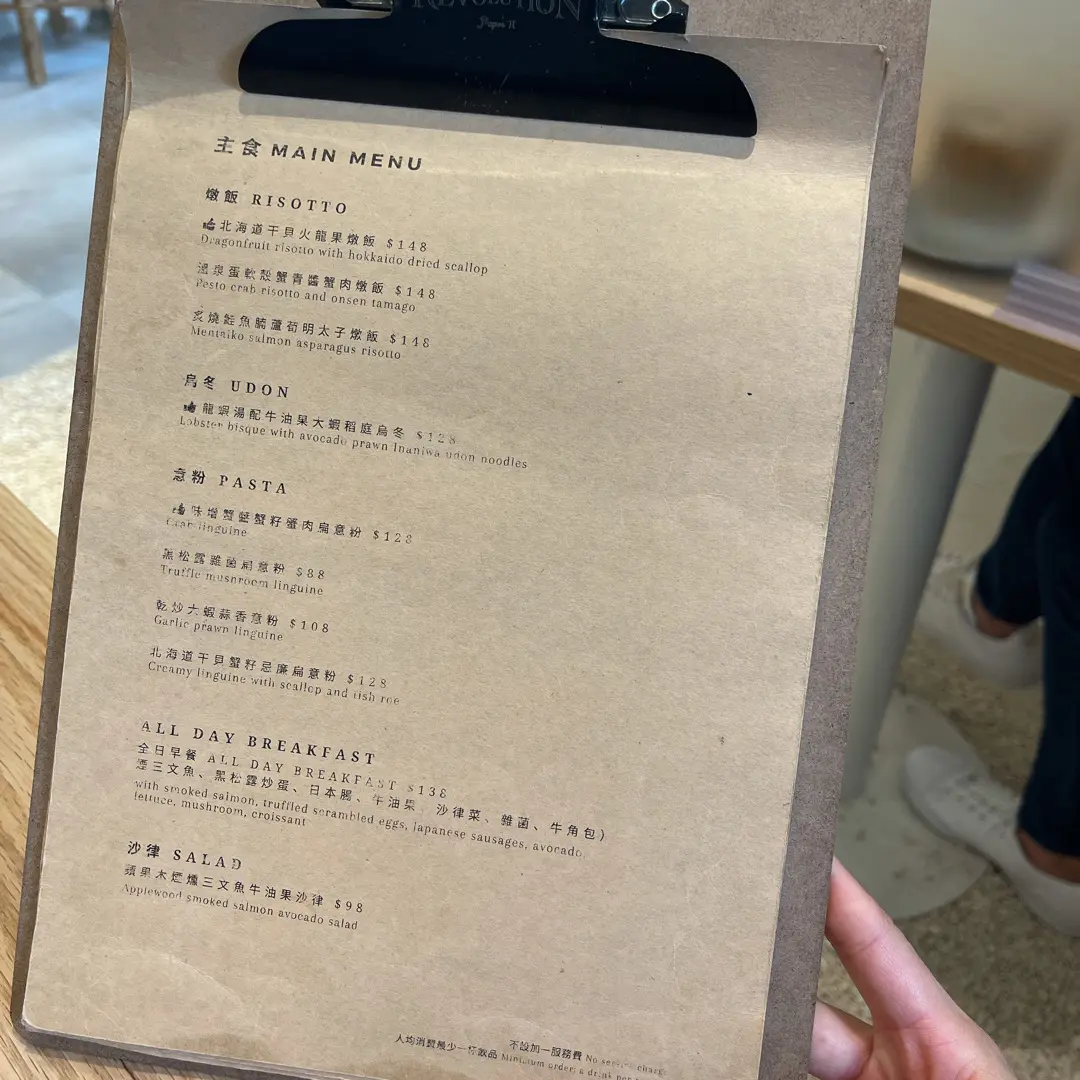 REVOLUTION
Paper II
主食 MAIN MENU
燉飯 RISOTTO
北海道干貝火龍果燉飯 $148
Dragonfruit risotto with hokkaido dried scallop
溫泉蛋軟殼蟹青醬蟹肉燉飯 $148
Pesto crab risotto and onsen tamago
炙燒鮭魚腩蘆荀明太子燉飯 $148
Mentaiko salmon asparagus risotto
烏冬 UDON
龍蝦湯配牛油果大蝦稻庭烏冬 $128
Lobster bisque with avocado prawn Inaniwa udon noodles
意粉 PASTA
味增蟹醬蟹籽蟹肉扁意粉 $128
Crab linguine
黑松露雜菌扁意粉 $88
Truffle mushroom linguine
乾炒大蝦蒜香意粉 $108
Garlic prawn linguine
北海道干貝蟹籽忌廉扁意粉 $128
Creamy linguine with scallop and fish roe
ALL DAY BREAKFAST
全日早餐 ALL DAY BREAKFAST $138
煙三文魚、黑松露炒蛋、日本腸、牛油果 沙律菜、雜菌、牛角包)
with smoked salmon, truffled scrambled eggs, japanese sausages, avocado,
lettuce, mushroom, croissant
沙律 SALAD
蘋果木煙燻三文魚牛油果沙律 $98
Applewood smoked salmon avocado salad
不設加一服務費 No service charge
人均消費最少一杯飲品 Minimum order: a drink per